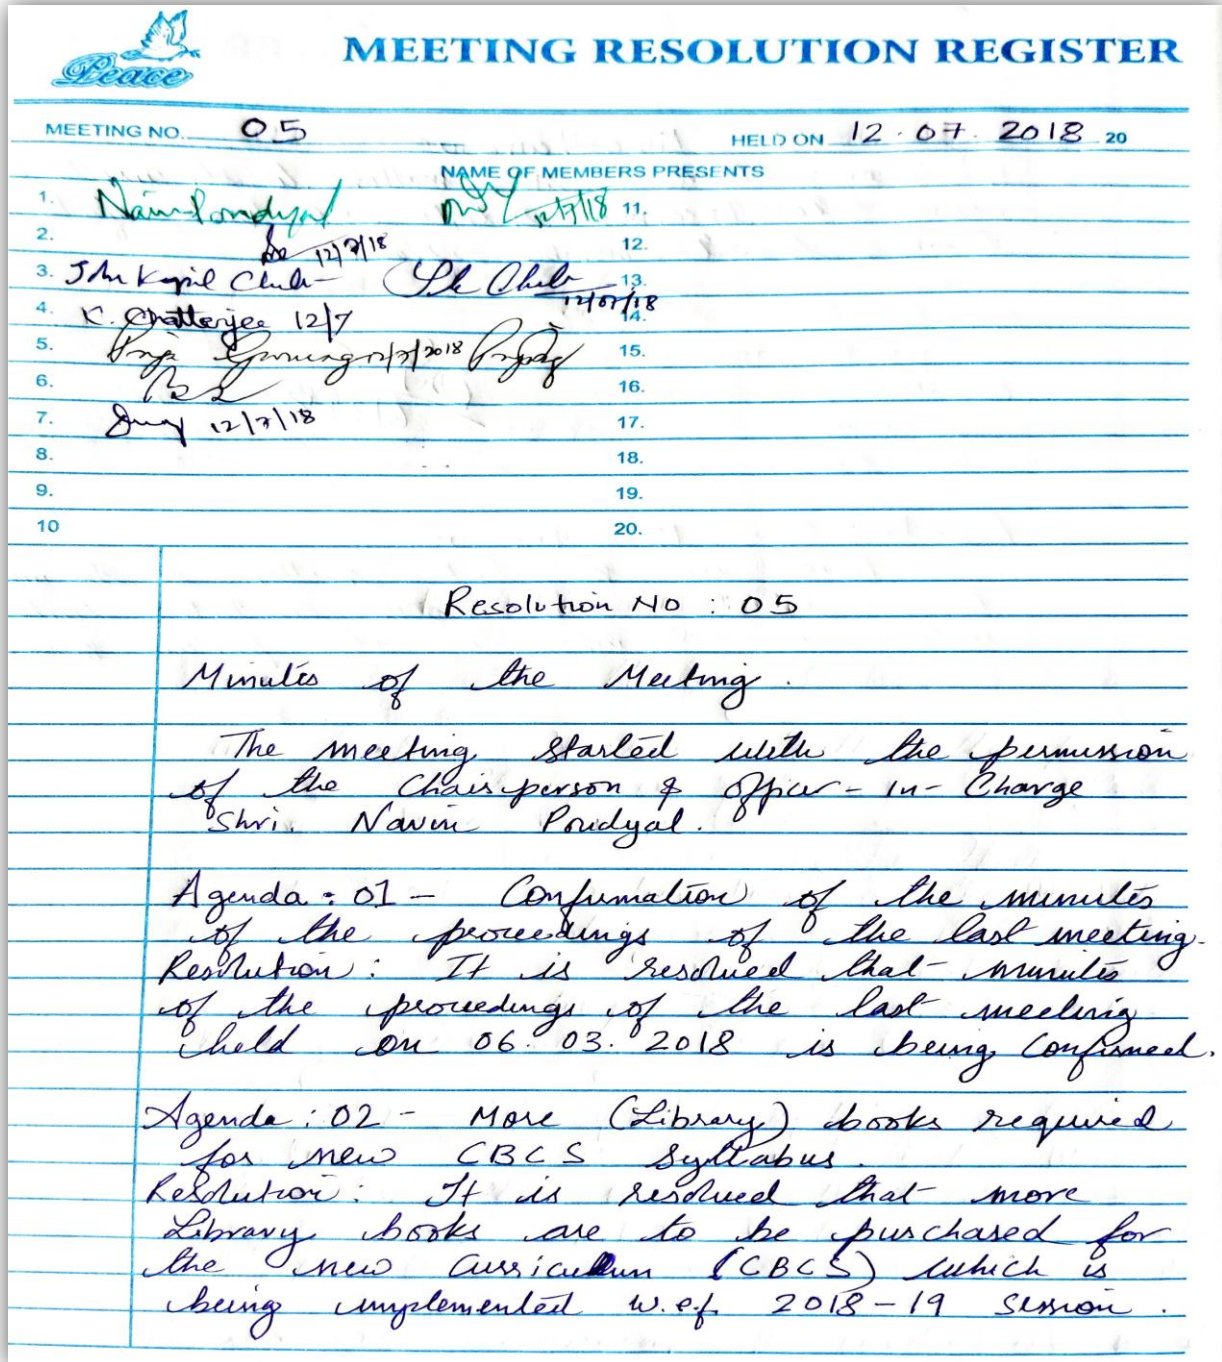 Peace
MEETING RESOLUTION REGISTER
MEETING NO. 05 HELD ON 12.07.2018 20
NAME OF MEMBERS PRESENTS
1. 12/7/18 11.
2. 12/7/18 12.
3. 12/07/18 13.
4. K. Chatterjee 12/7 14.
5. Gurung 12/7/2018 15.
6. 16.
7. 12/7/18 17.
8. 18.
9. 19.
10 20.
Resolution No : 05
Minutes of the Meeting.
The meeting started with the permission
of the Chairperson & Officer-In-Charge
Shri. Navin Poudyal.
Agenda : 01 - Confirmation of the minutes
of the proceedings of the last meeting.
Resolution : It is resolved that minutes
of the proceedings of the last meeting
held on 06.03.2018 is being confirmed.
Agenda : 02 - More (Library) books required
for new CBCS Syllabus.
Resolution : It is resolved that more
Library books are to be purchased for
the new Curriculum (CBCS) which is
being implemented w.e.f. 2018-19 session.